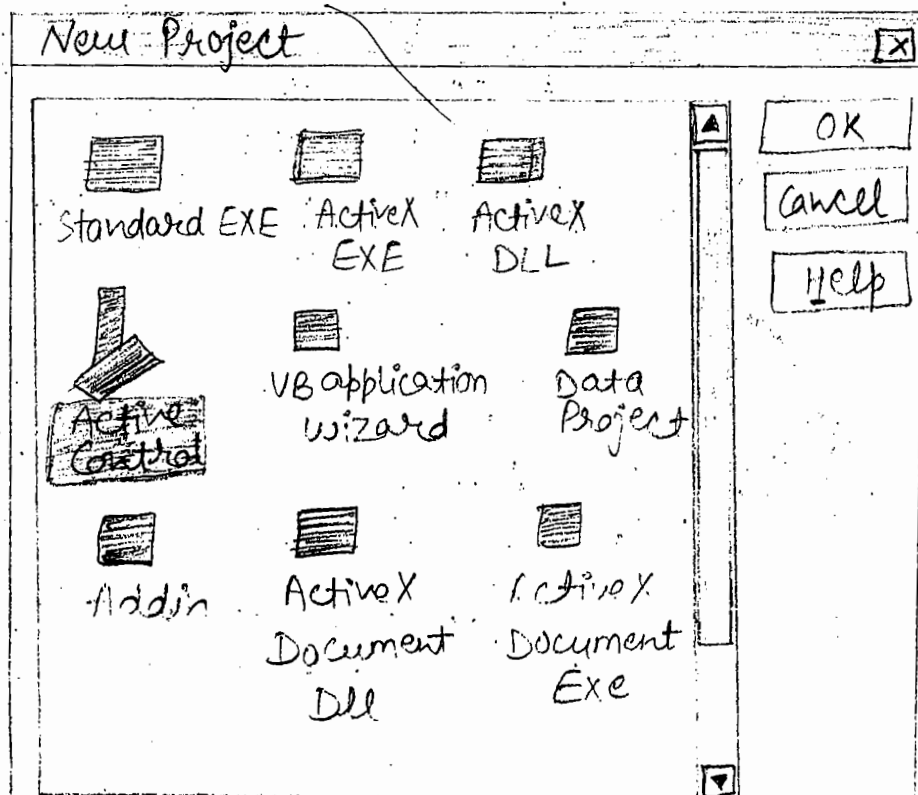 New Project
OK
Cancel
Help
Standard EXE
ActiveX
EXE
ActiveX
DLL
Active
Control
VB application
wizard
Data
Project
Addin
ActiveX
Document
Dll
ActiveX
Document
Exe